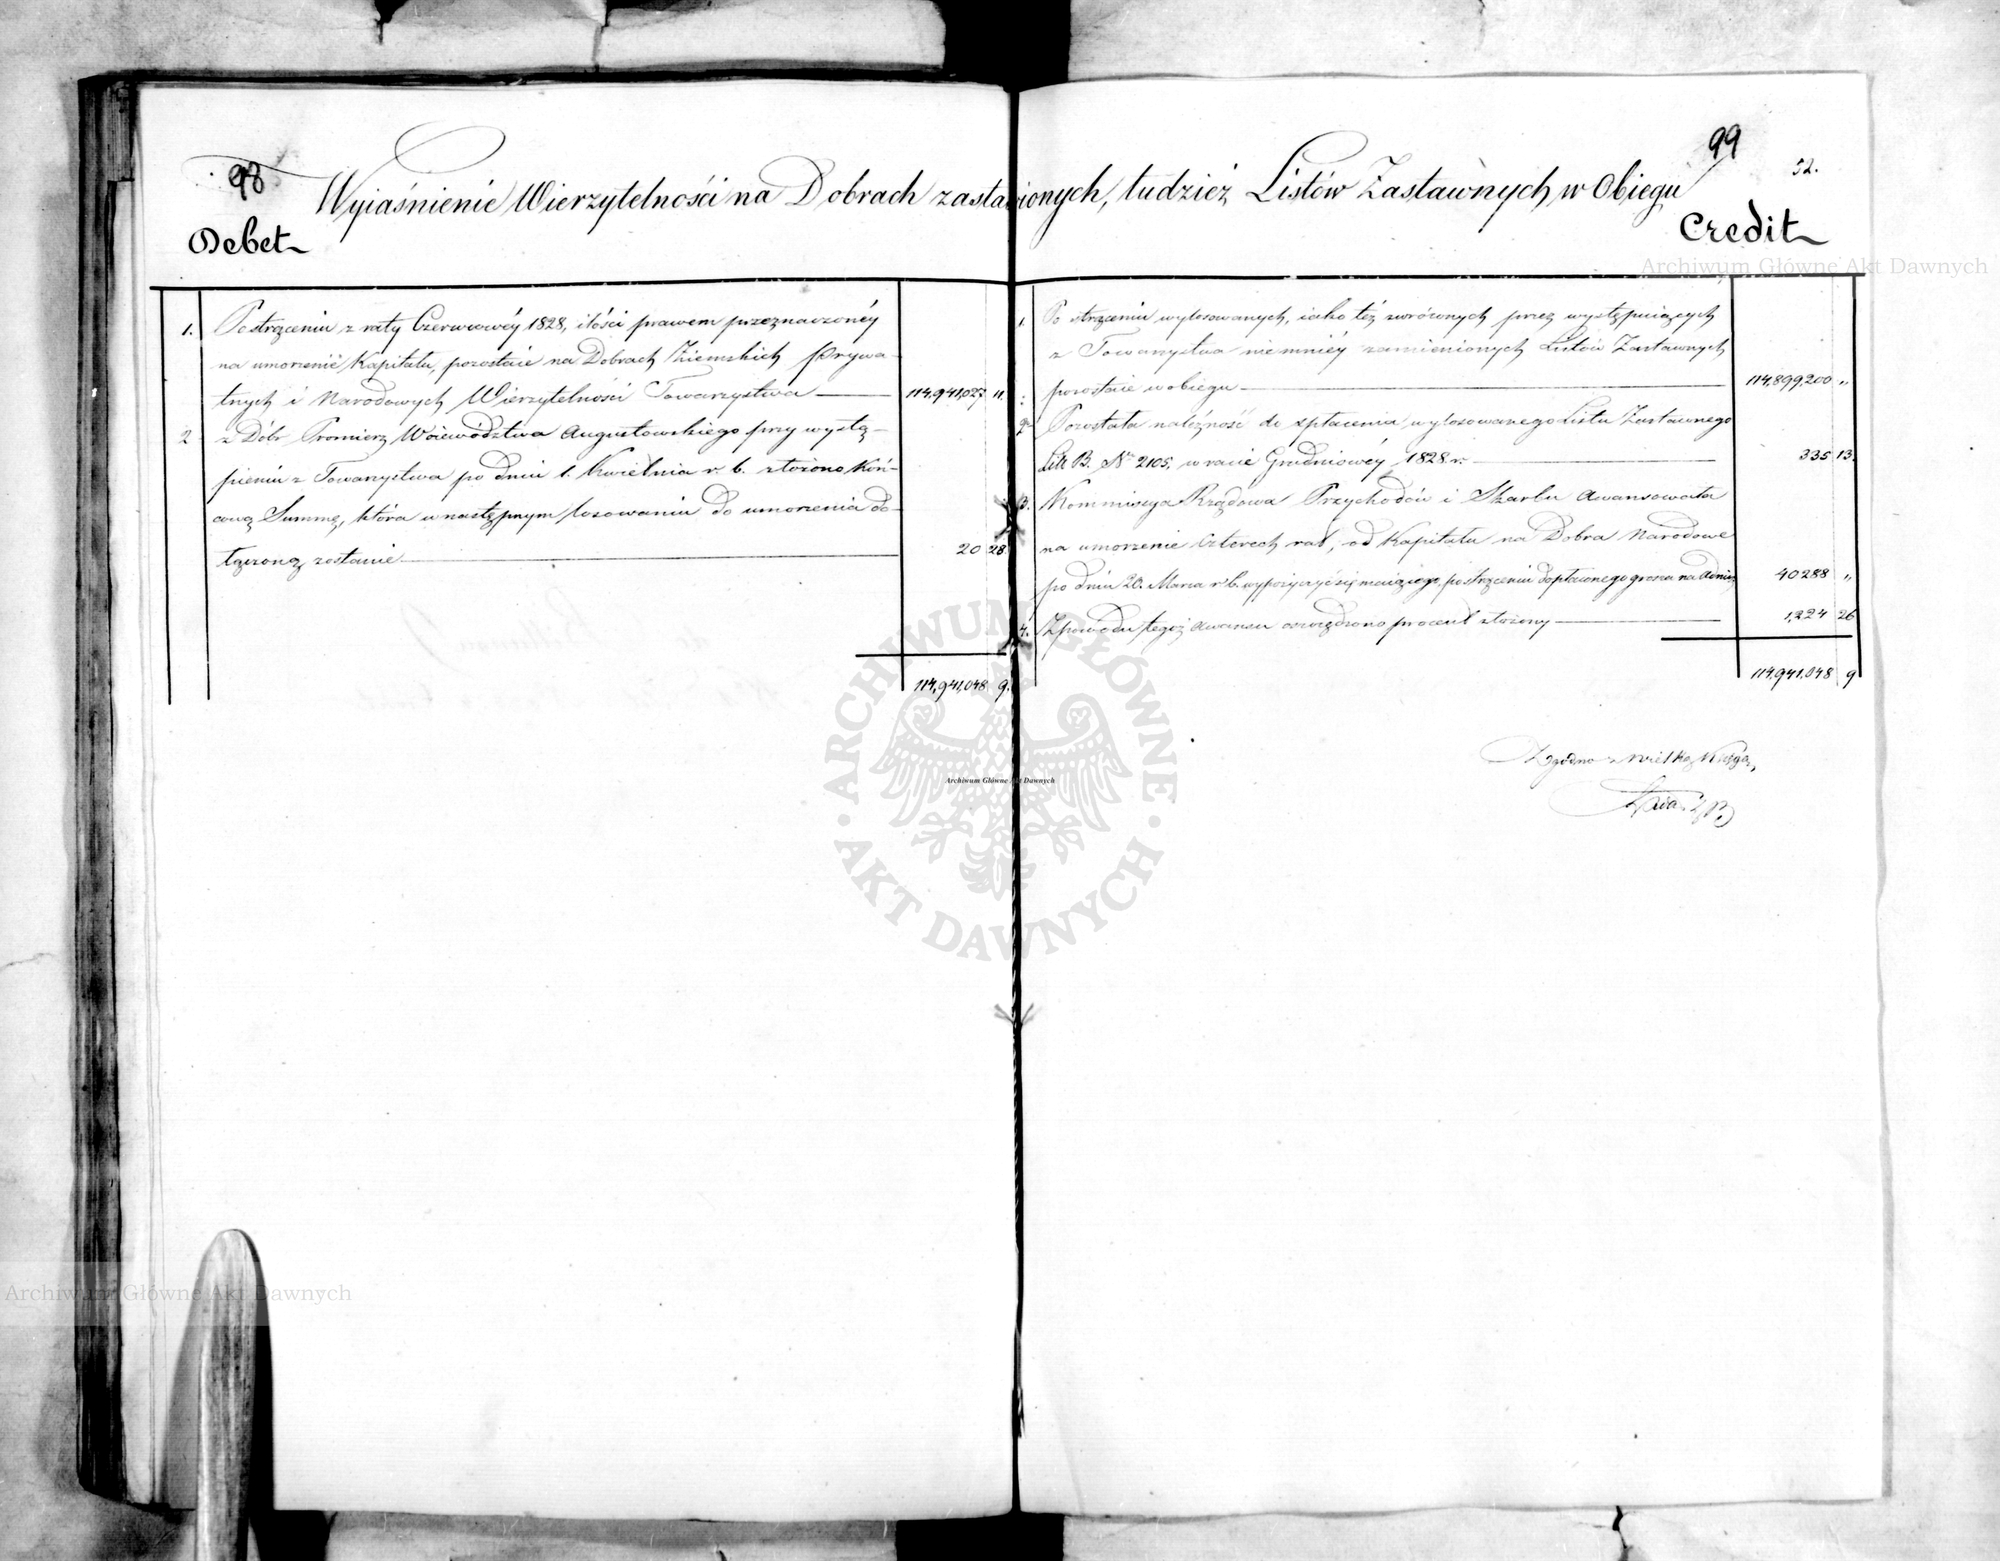 98
99
52.
Wyiaśnienie Wierzytelności na Dobrach zastawionych, tudzież Listów Zastawnych w Obiegu
Debet
Credit
1. Po strąceniu z raty Czerwcowéy 1828, ilości prawem przeznaczonéy
na umorzenie Kapitału, pozostaie na Dobrach Ziemskich Prywa-
tnych i Narodowych Wierzytelności Towarzystwa 114,941,027 11.
2 z Dóbr Promierz Woiewództwa Augustowskiego przy wystą-
pieniu z Towarzystwa po dniu 1. Kwietnia r. b. złożono Koń-
cową Summę, która w następnym losowaniu do umorzenia do-
łączoną zostanie 20 28
114,941,048 9.
1. Po strąceniu wylosowanych, iako też zwróconych przez występuiących
z Towarzystwa niemniéy zamienionych Listów Zastawnych
pozostaie w obiegu 114,899,200 "
2. Pozostała należność do spłacenia wylosowanego Listu Zastawnego
Litt B. Nr 2105. w racie Grudniowéy 1828 r. 335 13.
3. Kommissya Rządowa Przychodów i Skarbu awansowała
na umorzenie czterech rat, od Kapitału na Dobra Narodowe
po dniu 20. Marca r. b. wypożyczyć się maiącego, po strąceniu dopłaconego grosza na Admin: 40288 "
4. Z powodu tegoż awansu oszczędzono procent złożony 1,224 26
114,941,048 9
Zgodno z Wielką Księgą
Archiwum Główne Akt Dawnych
Archiwum Główne Akt Dawnych
Archiwum Główne Akt Dawnych
ARCHIWUM GŁÓWNE
AKT DAWNYCH